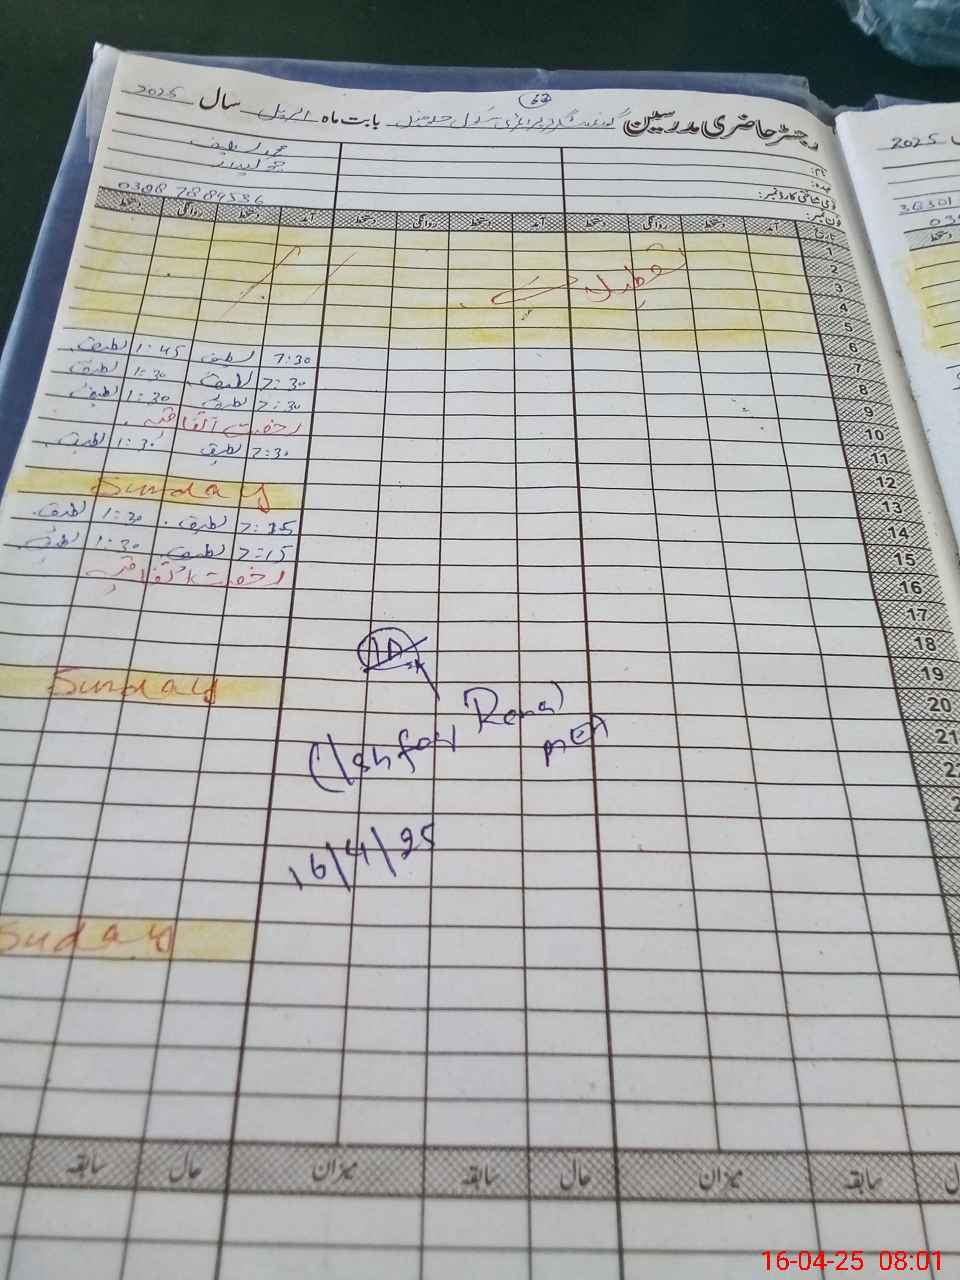 63
رجسٹر حاضری مدرسین گورنمنٹ گرلز پرائمری سکول بابت ماہ اپریل سال 2025
نام:
محمد لطیف
عہدہ:
چوکیدار
قومی شناختی کارڈ نمبر:
فون نمبر:
0308 7884536
تاریخ آمد دستخط روانگی دستخط آمد دستخط روانگی دستخط آمد دستخط روانگی دستخط
1
2
3
4
5
6
7 7:30 لطیف 1:45 لطیف
8 7:30 لطیف 1:30 لطیف
9 7:30 لطیف 1:30 لطیف
10 رخصت اتفاقیہ
11 7:30 لطیف 1:30 لطیف
12
13 Sunday
14 7:15 لطیف 1:30 لطیف
15 7:15 لطیف 1:30 لطیف
16 رخصت اتفاقیہ
17
18
19
20 Sunday
21
22
Sunday
MEA
16/4/25
میزان حال سابقہ میزان حال سابقہ
2025
16-04-25 08:01